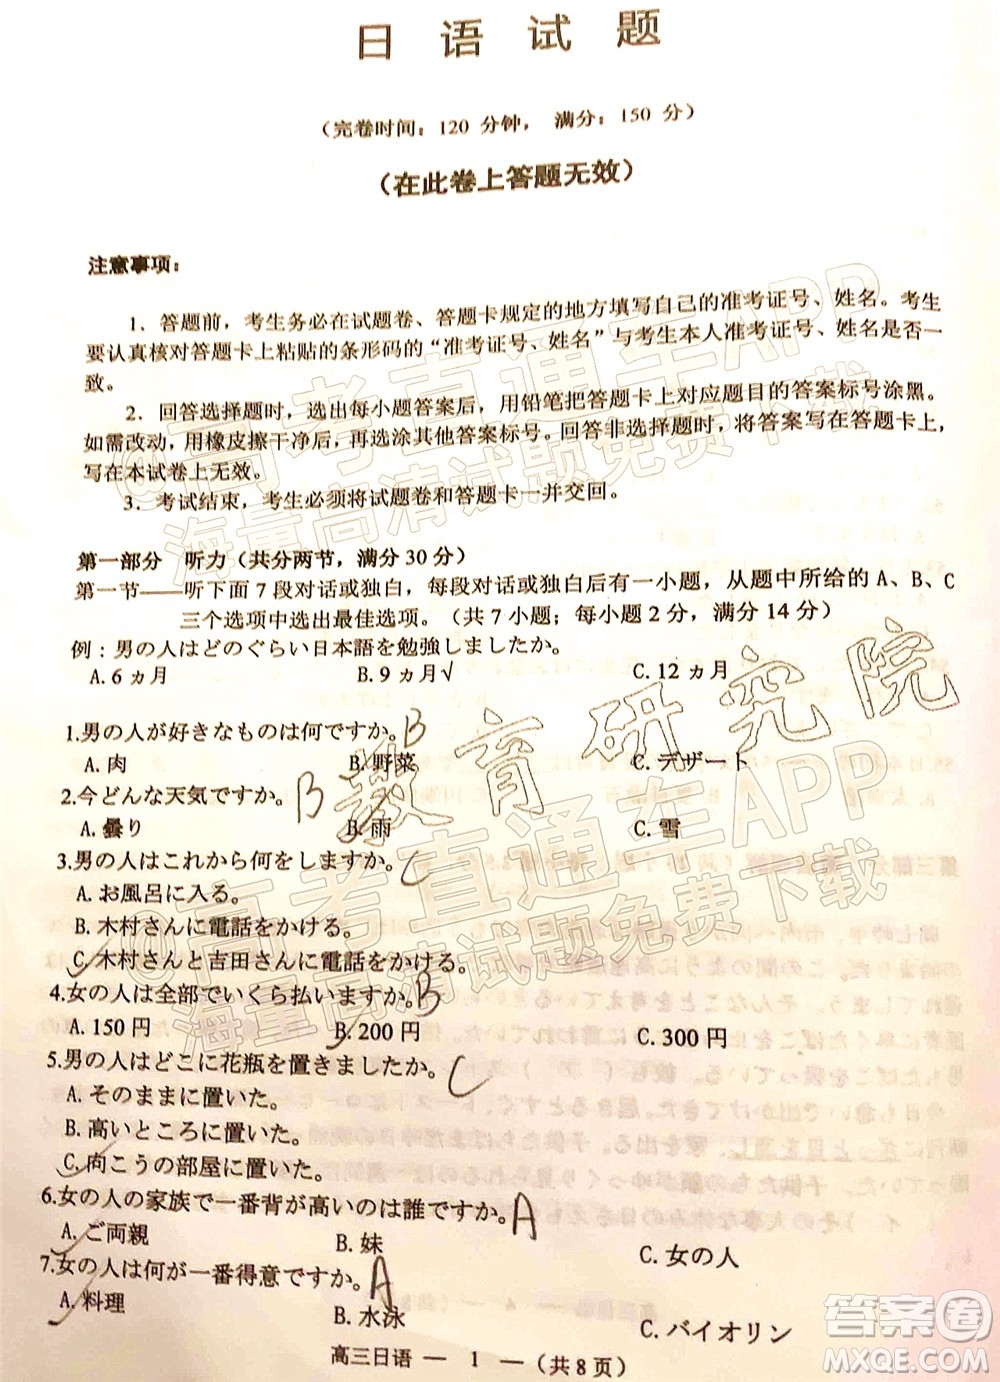 日语试题
（完卷时间：120 分钟， 满分：150 分）
（在此卷上答题无效）
注意事项：
1．答题前，考生务必在试题卷、答题卡规定的地方填写自己的准考证号、姓名。考生
要认真核对答题卡上粘贴的条形码的“准考证号、姓名”与考生本人准考证号、姓名是否一
致。
2．回答选择题时，选出每小题答案后，用铅笔把答题卡上对应题目的答案标号涂黑。
如需改动，用橡皮擦干净后，再选涂其他答案标号。回答非选择题时，将答案写在答题卡上，
写在本试卷上无效。
3．考试结束，考生必须将试题卷和答题卡一并交回。
第一部分 听力（共分两节，满分 30 分）
第一节——听下面 7 段对话或独白，每段对话或独白后有一小题，从题中所给的 A、B、C
三个选项中选出最佳选项。（共 7 小题；每小题 2 分，满分 14 分）
例：男の人はどのぐらい日本語を勉強しましたか。
A. 6 ヵ月 B. 9 ヵ月√ C. 12 ヵ月
1.男の人が好きなものは何ですか。 B
A. 肉 B. 野菜 C. デザート
2.今どんな天気ですか。 B
A. 曇り B. 雨 C. 雪
3.男の人はこれから何をしますか。 C
A. お風呂に入る。
B. 木村さんに電話をかける。
C. 木村さんと吉田さんに電話をかける。
4.女の人は全部でいくら払いますか。 B
A. 150 円 B. 200 円 C. 300 円
5.男の人はどこに花瓶を置きましたか。 C
A. そのままに置いた。
B. 高いところに置いた。
C. 向こうの部屋に置いた。
6.女の人の家族で一番背が高いのは誰ですか。 A
A. ご両親 B. 妹 C. 女の人
7.女の人は何が一番得意ですか。 A
A. 料理 B. 水泳 C. バイオリン
高三日语 — 1 — （共 8 页）
教育研究院
@高考直通车APP
海量高清试题免费下载
@高考直通车APP
海量高清试题免费下载
答案圈
MXQE.COM